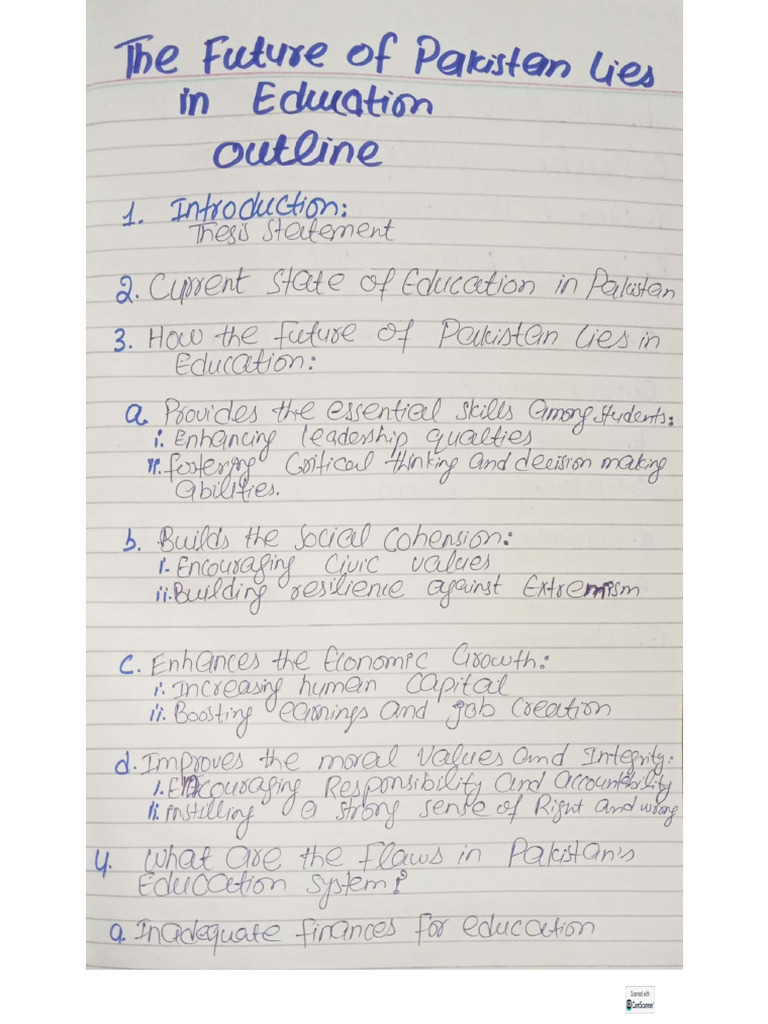 The Future of Pakistan Lies
in Education
outline
1. Introduction:
Thesis statement
2. Current state of Education in Pakistan
3. How the future of Pakistan Lies in
Education:
a. Provides the essential skills among students:
i. Enhancing leadership qualties
ii. Fostering Critical thinking and decision making
abilities.
b. Builds the social Cohension:
i. Encouraging civic values
ii. Building resilience against Extremism
C. Enhances the Economic Growth:
i. Increasing human capital
ii. Boosting earnings and job creation
d. Improves the moral values and Integrity:
i. Encouraging Responsibility and accountability
ii. instilling a strong sense of Right and wrong
4. What are the Flaws in Pakistan's
Education system?
a. Inadequate finances for education
Scanned with
CamScanner